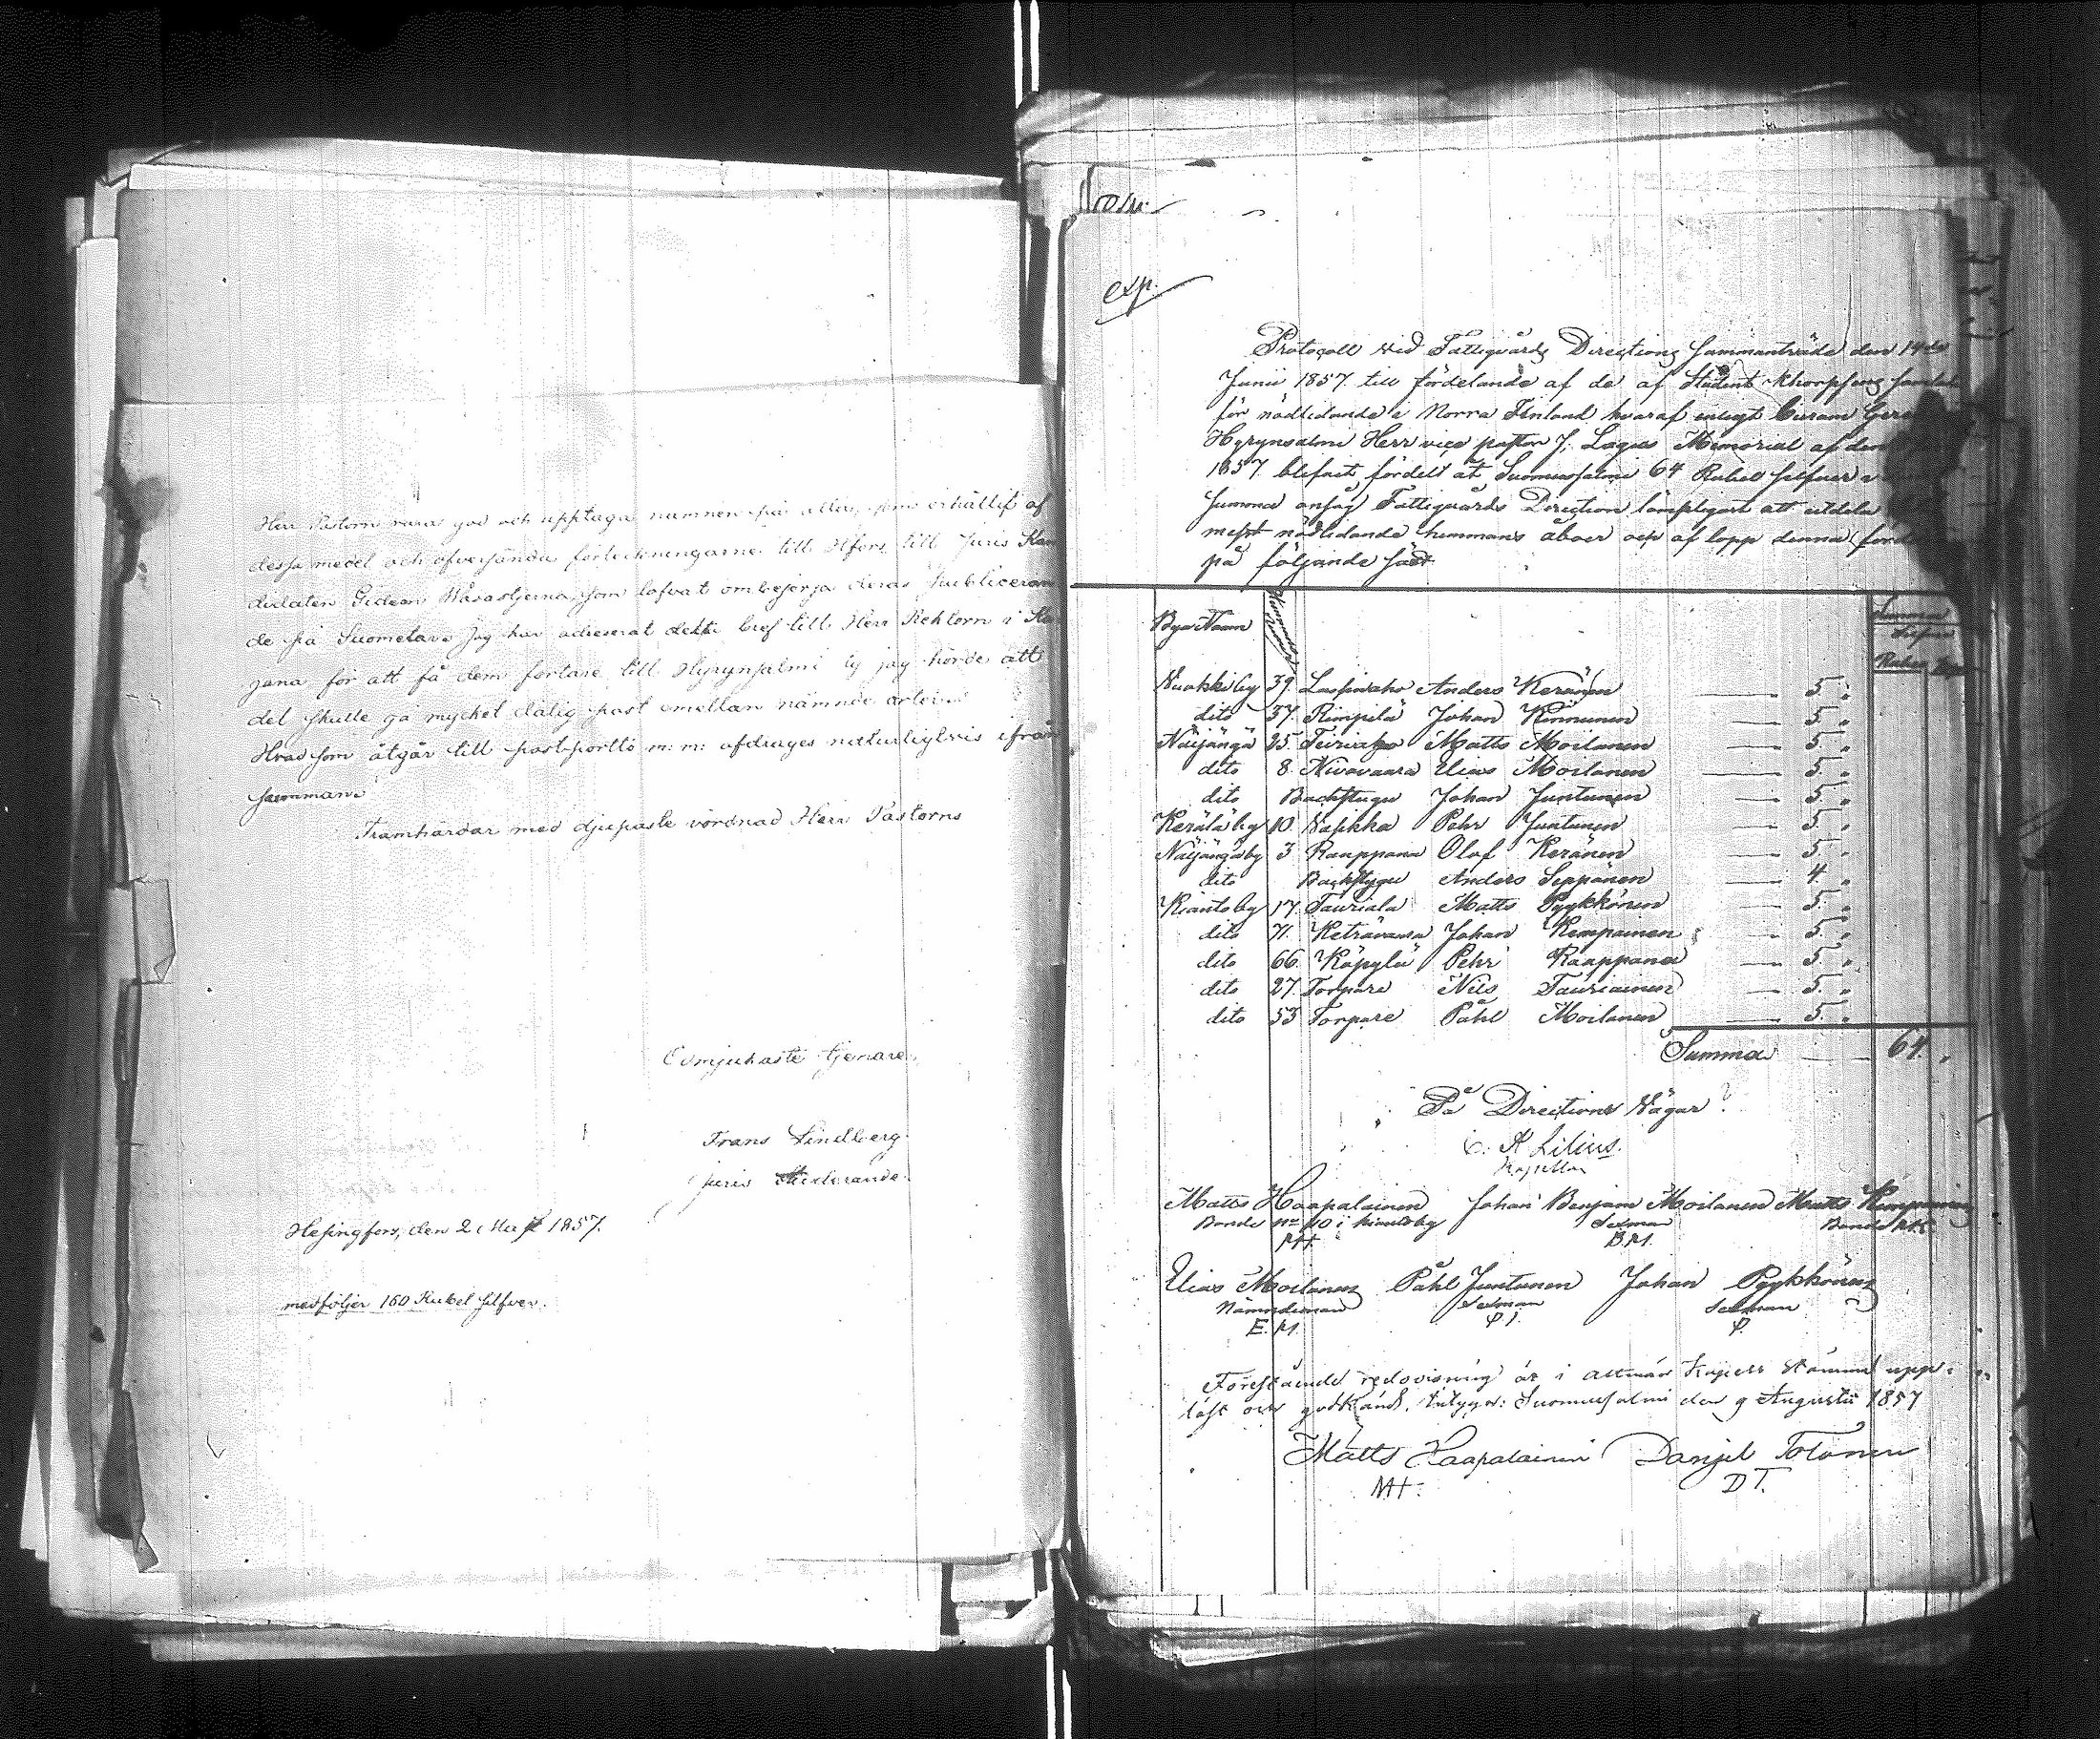 Herr Pastorn vara god och upptaga namnen på alla, som erhållit af
dessa medel och öfversända förteckningarne till Hfors till Juris Kan
didaten Gideon Wasastjerna, som lofvat ombesörja deras publiceran
de på Suometar. Jag har adresserat detta bref till Herr Rektorn i Ka
jana för att få dem fortare till Hyrynsalmi ty jag hörde att
det skulle gå mycket dålig post emellan nämnde orter.
Hvad som åtgår till postportto m: m: afdrages naturligtvis ifrån
summan.
Framhärdar med djupaste vördnad Herr Pastorns
Ödmjukaste tjenare
Frans Lindberg
juris Studerande.
Helsingfors, den 2 Maji 1857.
medföljer 160 Rubel silfver.
exp.
Protocoll vid Fattigvårds Directions Sammanträde den 14de
Junii 1857. till fördelande af de af Student
för nödlidande i Norra Finland hvaraf enligt
Hyrynsalmi Herr vice pastor J. Lagus Memorial af den
1857. blifvit fördelt åt Suomussalmi 64 Rubel silfver
Summa ansåg Fattigvårds Direction lämpligast att utdela
mest nödlidande hemmans åboer och af lopp denna
på följande sätt
Bya Namn
Summa
Silfver
Rubel Kop
Vuokki by 39. Anders Keränen 5. „
dito 37. Rimpilä Johan Kinnunen 5. „
Näljängä 25. Matts Moilanen 5. „
dito 8. Nivavaara Elias Moilanen 5. „
dito Backstugu Johan Juntunen 5. „
Kerälä by 10. Vasikka Pehr Juntunen 5. „
Näljängä by 3 Rauppana Olof Keränen 5. „
dito Backstugu Anders Seppänen 4. „
Kianto by 17. Tauriala Matts Pyykkönen 5. „
dito 71. Keträvaara Johan Kempainen 5. „
dito 66. Käpylä Pehr Raappana 5. „
dito 27. Torpare Nils Tauriainen 5. „
dito 53 Torpare Påhl Moilanen 5. „
Summa 64. „
På Directions Vägar
C. A Lilius.
Kapellan
Matts Haapalainen Johan Benjam Moilanen Matts Kempainen
Bonde No 40 i Kianto by Sexman Bonde
MH. B.M.
Elias Moilanen Påhl Juntunen Johan Pyykkönen
Nämndeman Sexman Sexman
E. M. P J. P.
Förestående redovisning är i allmän Kapell Stämma upp-
läst och godkänd, intygar: Suomussalmi den 9 Augusti 1857
Matts Haapalainen Danjel Tolonen
MH. D T.